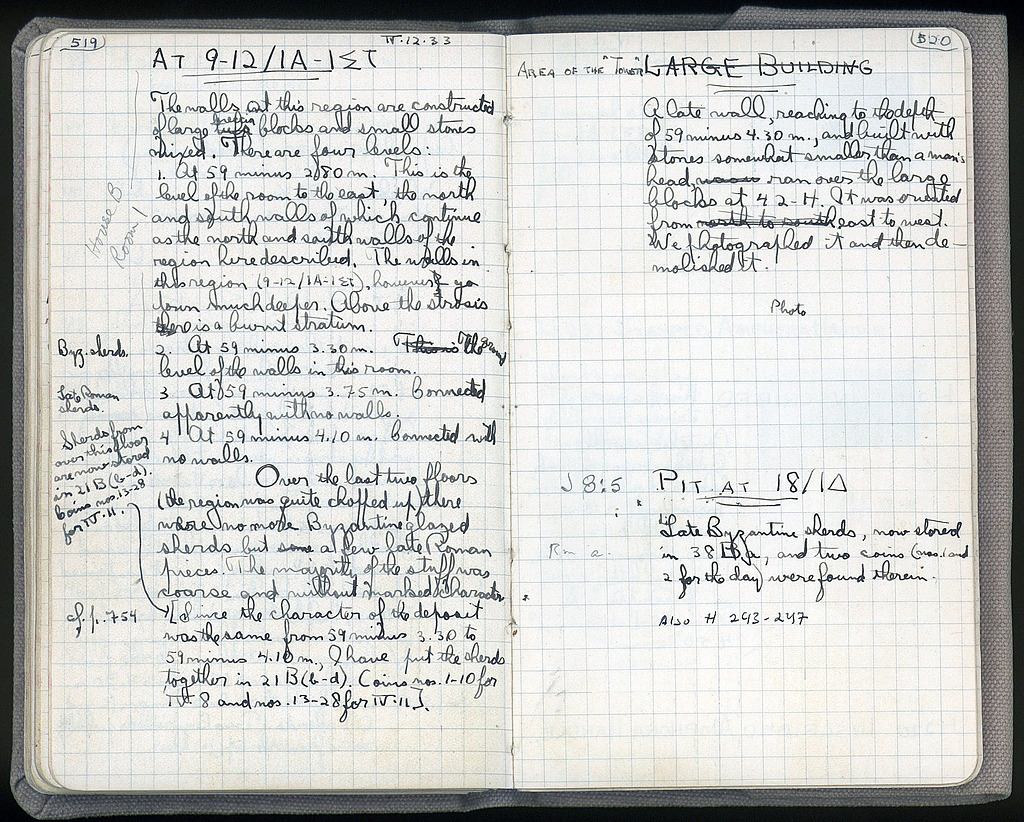 519
IV.12.33
AT 9-12/IA-IΣT
The walls in this region are constructed
of large blocks and small stones
mixed. There are four levels:
1. At 59 minus 2.80 m. This is the
level of the room to the east, the north
and south walls of which continue
as the north and south walls of the
region here described. The walls in
this region (9-12/IA-IΣT), however, go
down much deeper. Above the strosis
there is a burnt stratum.
House B
Room 1
Byz. sherds.
2. At 59 minus 3.30 m. This is The ground
level of the walls in this room.
Late Roman
sherds.
3 At 59 minus 3.75 m. Connected
apparently with no walls.
Sherds from
over this floor
are now stored
in 21 B (b-d).
Coins nos. 13-28
for IV.11.
4 At 59 minus 4.10 m. Connected with
no walls.
Over the last two floors
(the region was quite chopped up) there
were no more Byzantine glazed
sherds but some a few late Roman
pieces. The majority of the stuff was
coarse and without marked character
cf. p. 754
[Since the character of the deposit
was the same from 59 minus 3.30 to
59 minus 4.10 m., I have put the sherds
together in 21 B (b-d). Coins nos. 1-10 for
IV.8 and nos. 13-28 for IV.11].
520
AREA OF THE "TOWER" LARGE BUILDING
A late wall, reaching to the depth
of 59 minus 4.30 m., and built with
stones somewhat smaller than a man's
head, ran over the large
blocks at 42-H. It was oriented
from north to south east to west.
We photographed it and then de-
molished it.
Photo
J 8:5
PIT AT 18/IΔ
Late Byzantine sherds, now stored
in 38 B a, and two coins (nos. 1 and
2 for the day) were found therein.
Rm a.
Also H 243-247